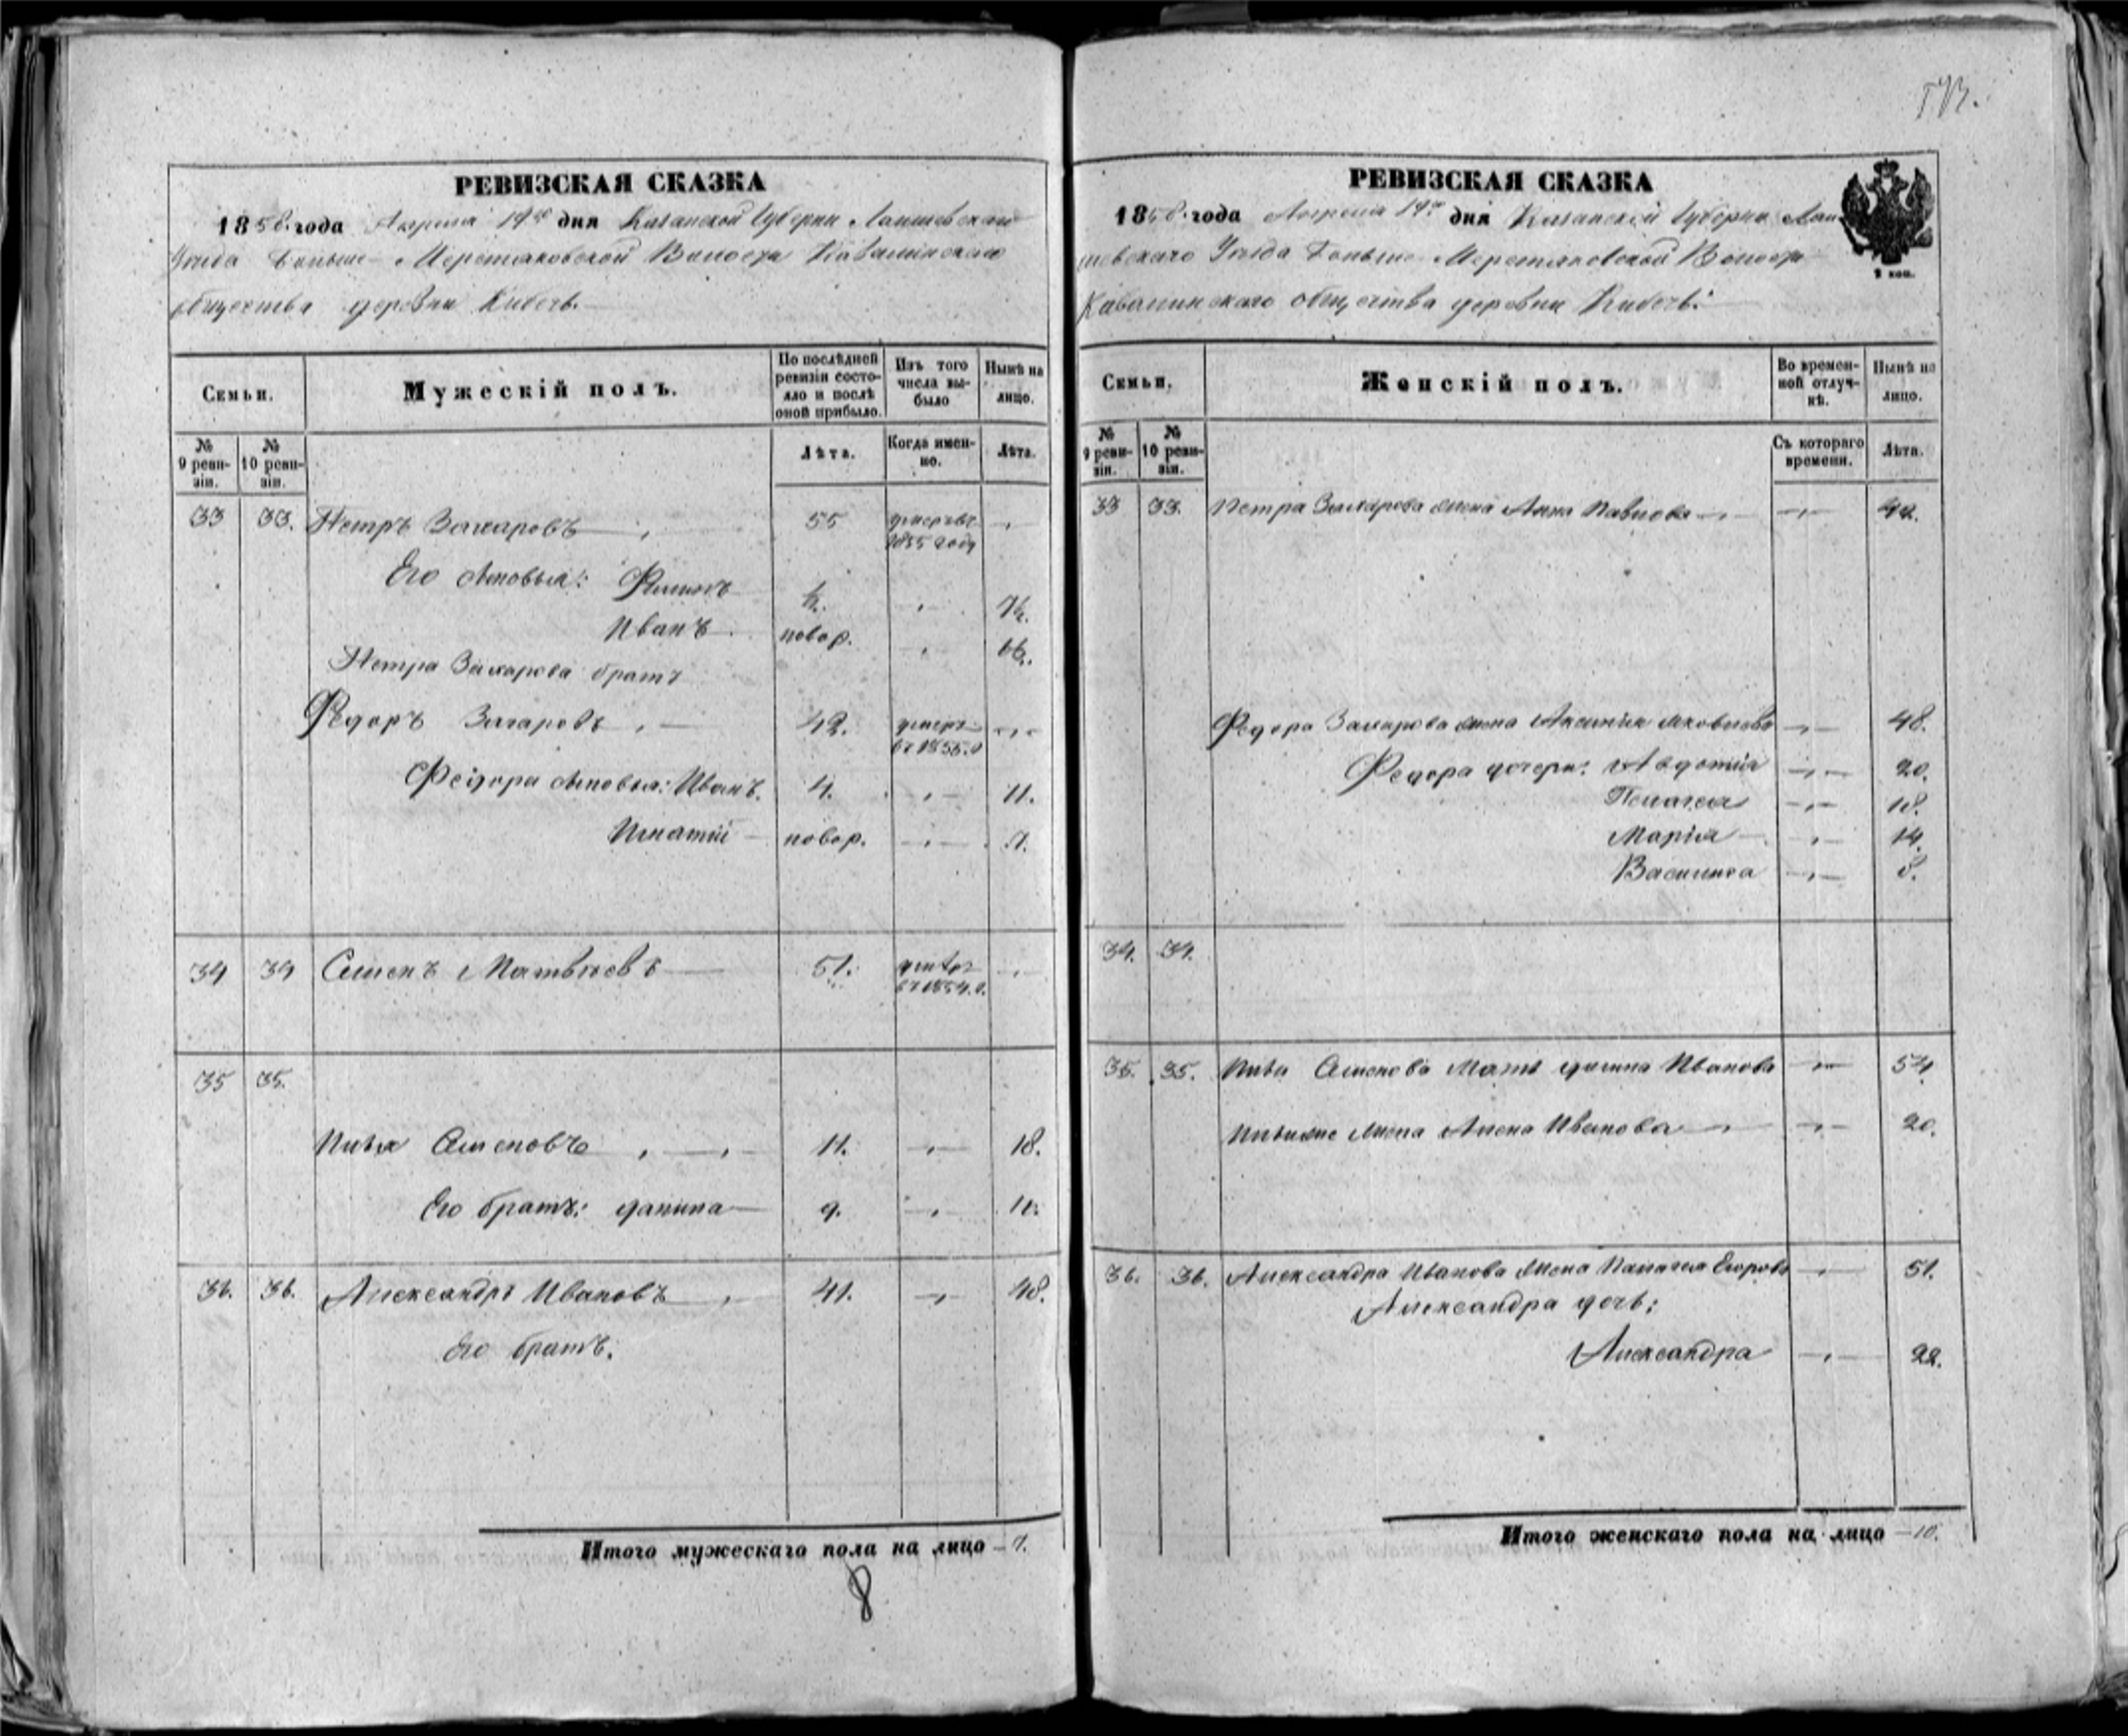 РЕВИЗСКАЯ СКАЗКА
1858 года Апреля 19го дня Казанской Губернии Лаишевскаго
Уезда Больше-Меретяковской Волости Ковалинскаго
общества деревни Кибечь.
Семьи.
Мужескій полъ.
По послѣдней ревизіи состояло и послѣ оной прибыло.
Изъ того числа выбыло
Нынѣ на лицо.
№ 9 ревизіи.
№ 10 ревизіи.
Лѣта.
Когда именно.
Лѣта.
33 33. Петръ Захаровъ 55 умеръ въ 1855 году
Его сыновья: Филипъ
Иванъ новор.
Петра Захарова братъ
Федоръ Захаровъ 42. умеръ въ 1855.г
Федора сыновья: Иванъ. 4. 11.
Игнатій новор. 7.
34 34 Семенъ Матвѣевъ 51. умеръ въ 1854.г.
35 35.
Илья Семеновъ 11. 18.
Его братъ: Данила 9.
36. 36. Александръ Ивановъ 41. 48.
Его братъ:
Итого мужескаго пола на лицо 7.
8
РЕВИЗСКАЯ СКАЗКА
1858 года Апреля 19го дня Казанской Губернии Лаи
шевскаго Уезда Больше-Меретяковской Волости
Ковалинскаго общества деревни Кибечь:
1 коп.
Семьи.
Женскій полъ.
Во временной отлучкѣ.
Нынѣ на лицо.
№ 9 ревизіи.
№ 10 ревизіи.
Съ котораго времени.
Лѣта.
33 33. Петра Захарова жена Анна Павлова
Федора Захарова жена Аксинья Яковлева 48.
Федора дочери: Авдотия 20.
Пелагея 18.
Марія 14.
Василиса 8.
34. 34.
35. 35. Ильи Семенова Мать Иванова 54
Ильи жена Алена Иванова 20.
36. 36. Александра Иванова жена Палагея Егорова 51.
Александра дочь:
Александра 22.
Итого женскаго пола на лицо 10.